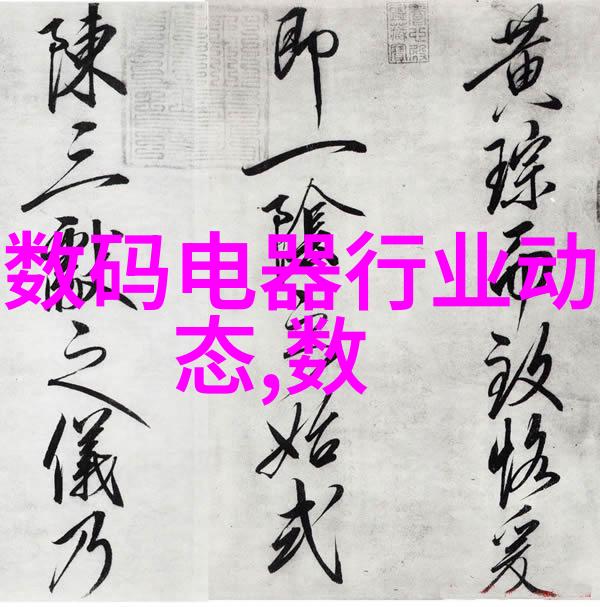 黃琮而致恪爰
即一陰始式
陳三獻之儀乃
数码电器行业动
态,数